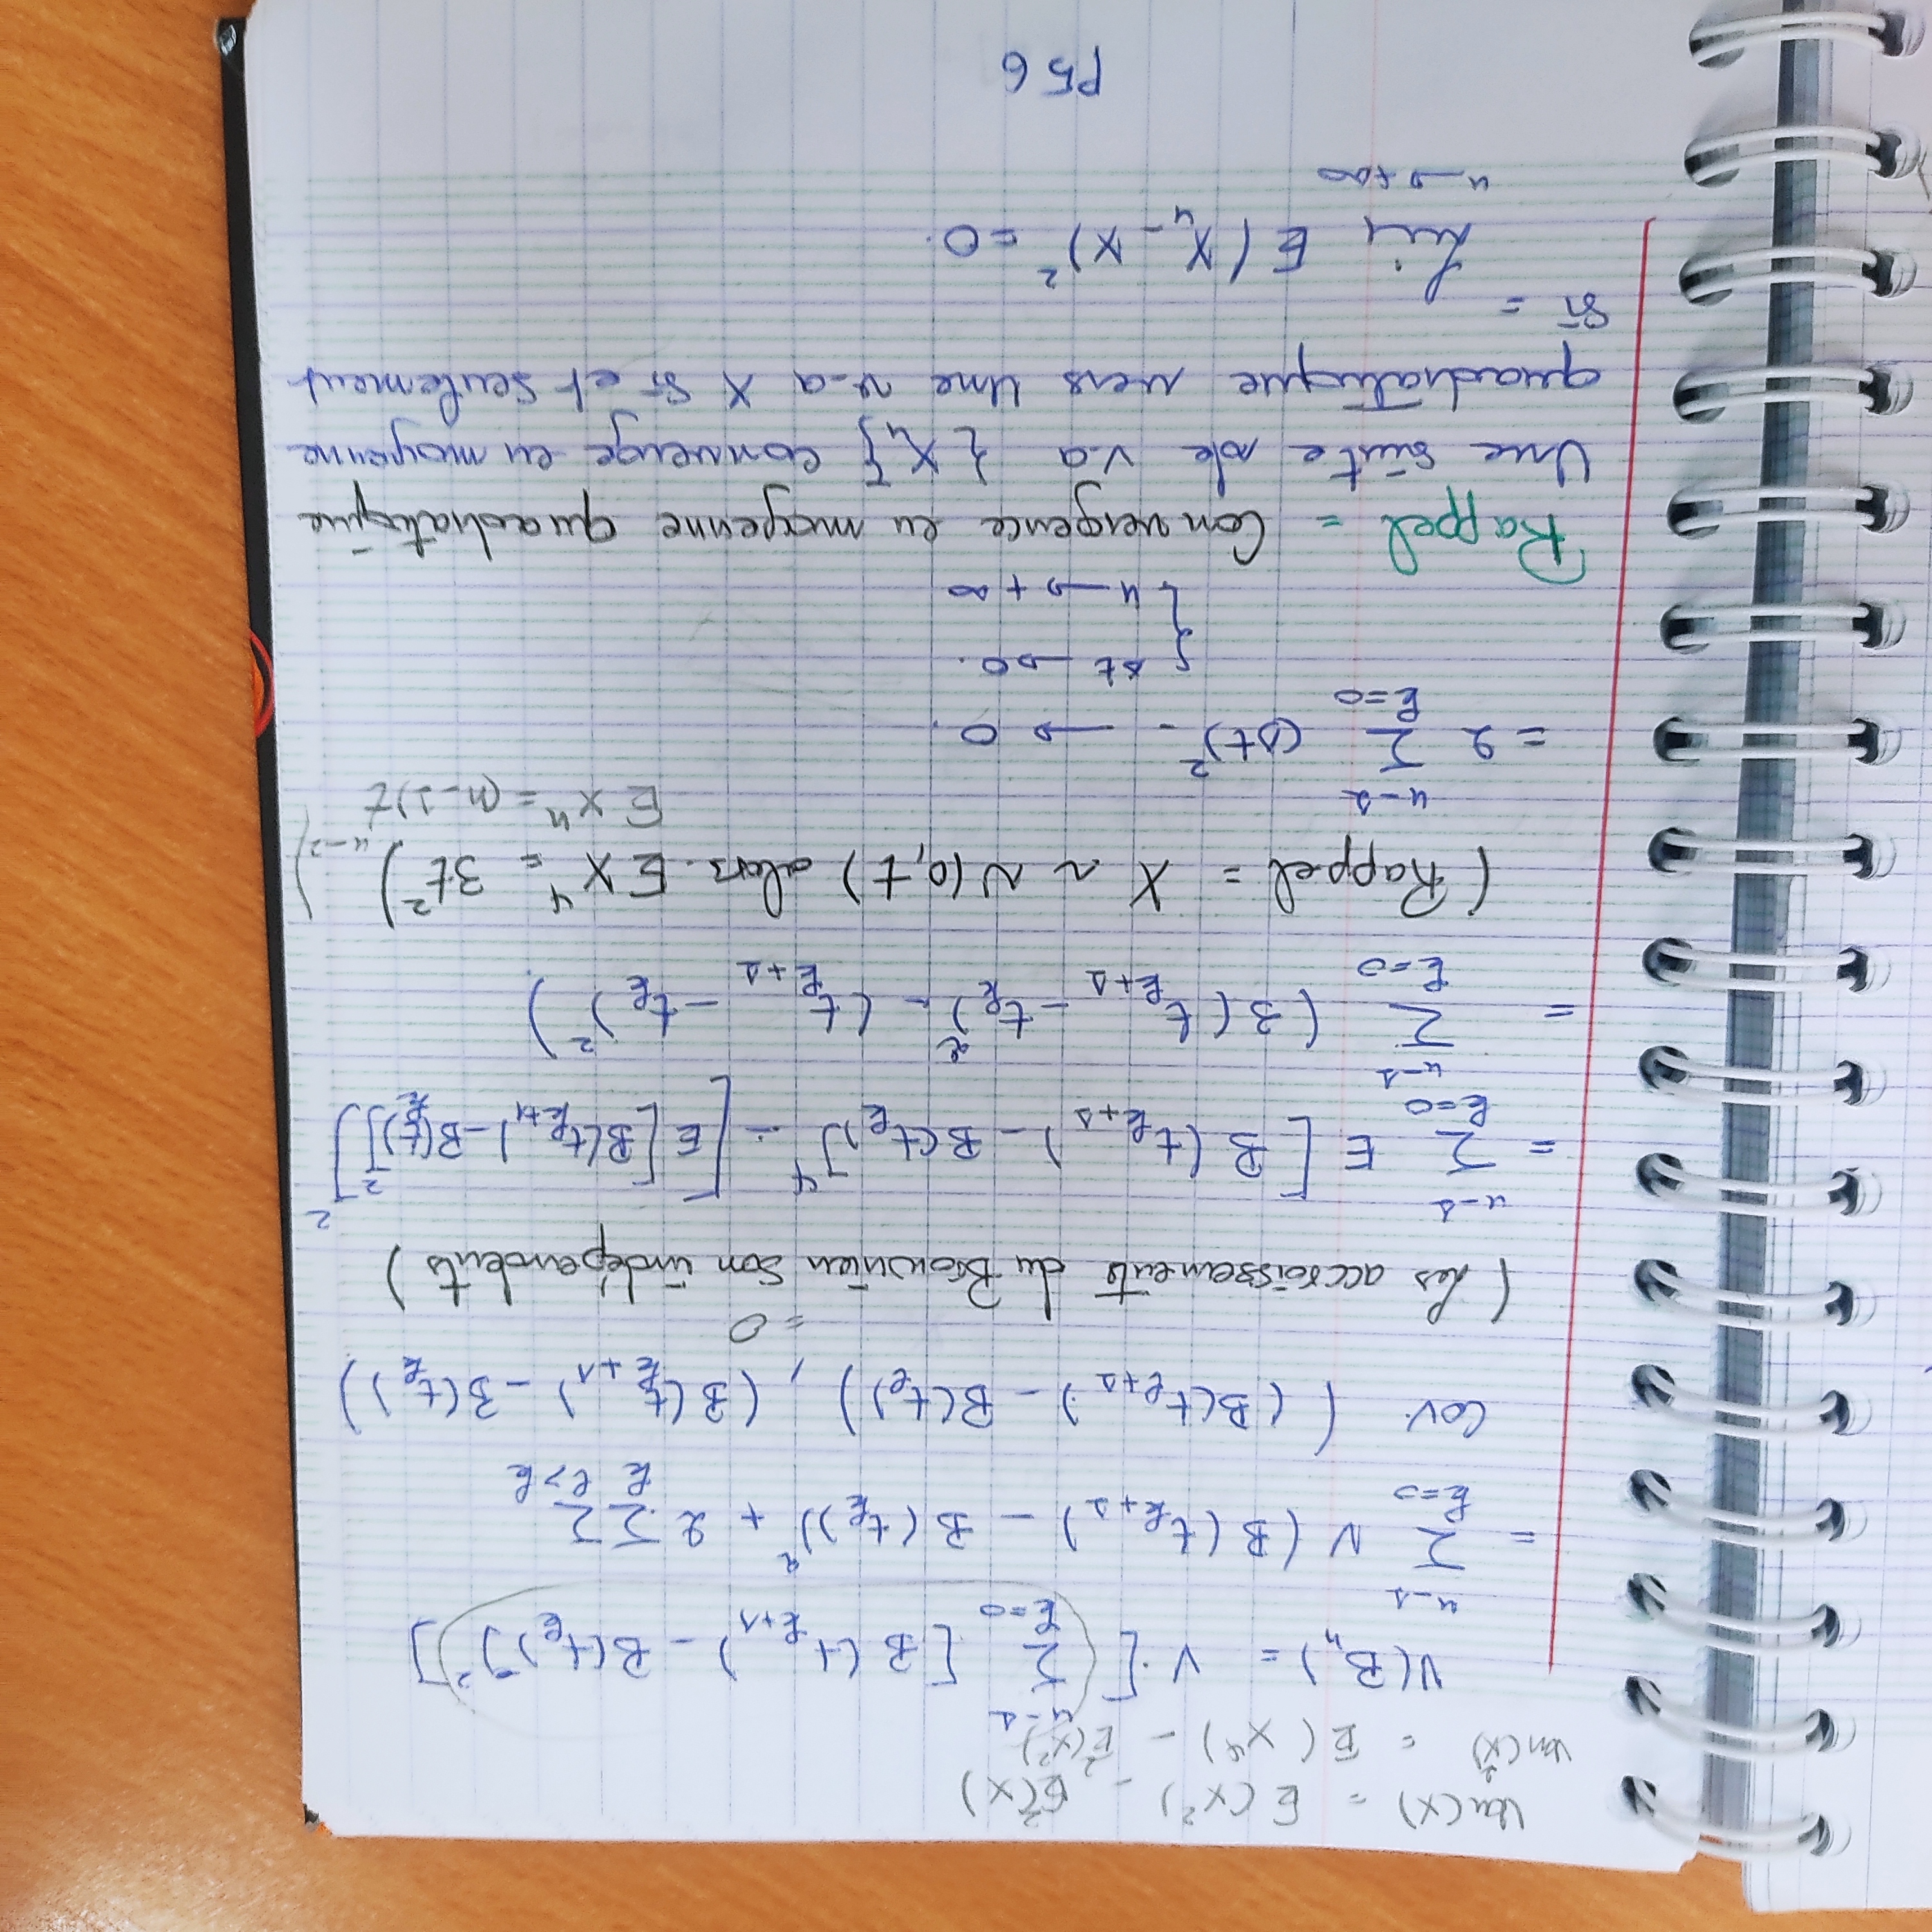 Var(X) = E(X²) - E²(X)
Var(X²) = E(X⁴) - E²(X²)
V(Bₙ) = V·[(∑_{k=0}^{n-1} [B(t_{k+1}) - B(t_k)]²)]
= ∑_{k=0}^{n-1} V(B(t_{k+1}) - B(t_k))² + 2 ∑_k ∑_{l>k}
Cov. ((B(t_{l+1}) - B(t_l)), (B(t_{k+1}) - B(t_k))
= 0
(Les accroissements du Brownien son indépendents)
= ∑_{k=0}^{n-1} E[B(t_{k+1}) - B(t_k)]⁴ - [E[B(t_{k+1}) - B(t_k)]²]²
= ∑_{k=0}^{n-1} (3(t_{k+1} - t_k)² - (t_{k+1} - t_k)²)
(Rappel = X ~ N(0,t) alors. EX⁴ = 3t²)
EXⁿ = (n-1)t^{n-2})
= 2 ∑_{k=0}^{n-1} (Δt)² → 0.
{ Δt → 0.
n → +∞
Rappel = Convergence en moyenne quadratique
Une suite de v.a {Xₙ} converge en moyenne
quadratique vers Une v.a X si et seulement
si =
Lim E(Xₙ - X)² = 0.
n → +∞
P56